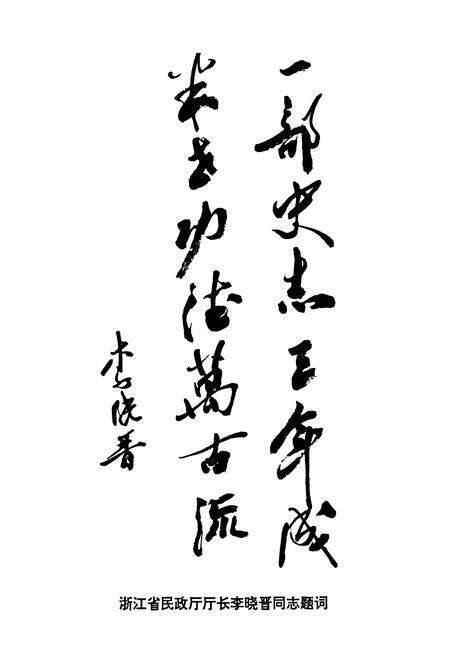 一部史志三年成
半世功德萬古流
李晓晋
浙江省民政厅厅长李晓晋同志题词